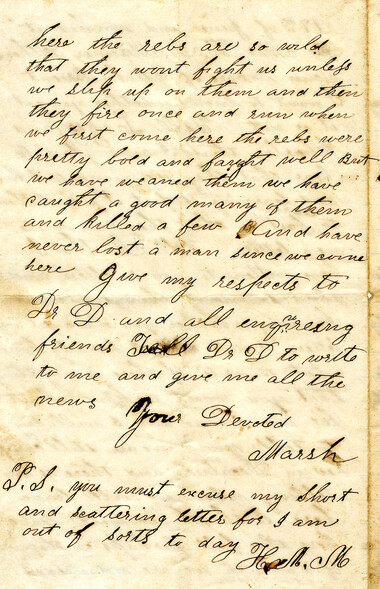 here the rebs are so wild
that they wont fight us unless
we slip up on them and then
they fire once and run when
we first come here the rebs were
pretty boed and faught well But
we have weaned them we have
caught a good many of them
and killed a few And have
never lost a man since we come
here Give my respects to
Dr D and all enquiresng
friends Tell Dr D to write
to me and give me all the
news Your Devoted
Marsh
P.S. you must excuse my short
and scattering letter for I am
out of sorts to day H. M. M